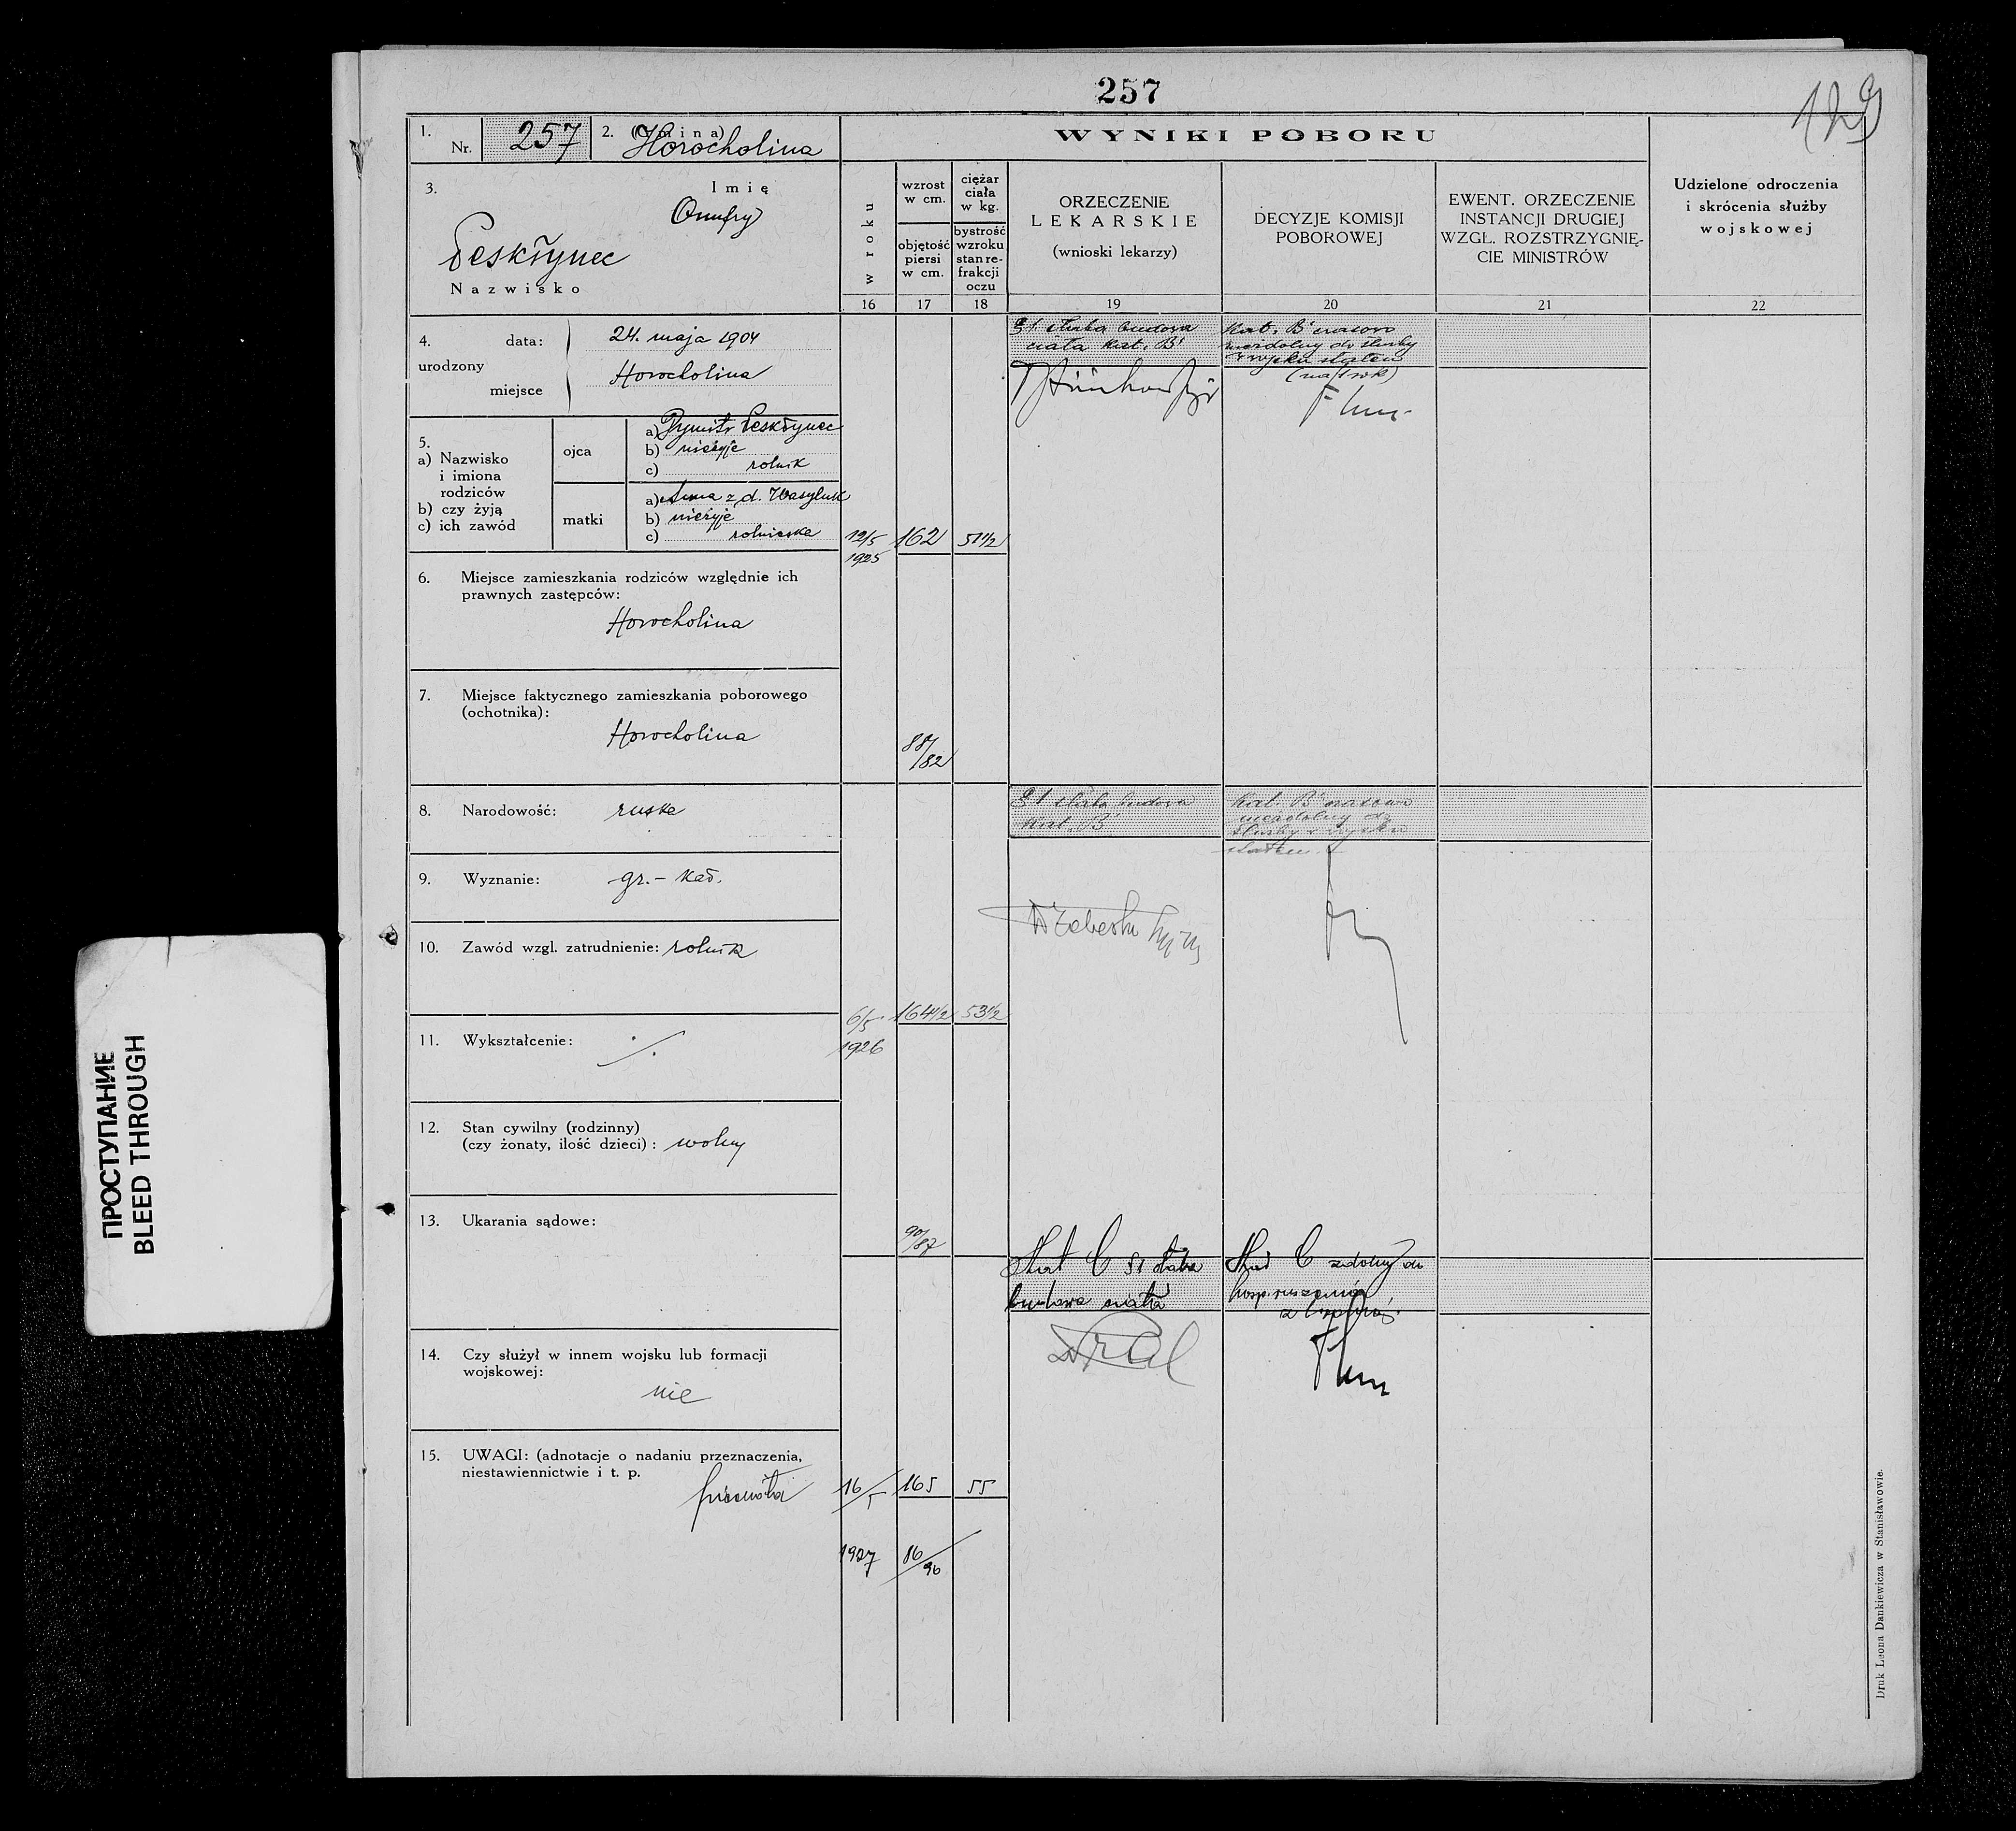 257
129
1.
Nr. 257
2. (Gmina)
Horocholina
WYNIKI POBORU
3. Imię
Onufry
Peskłynec
Nazwisko
w roku
wzrost w cm.
objętość piersi w cm.
ciężar ciała w kg.
bystrość wzroku stan refrakcji oczu
ORZECZENIE
LEKARSKIE
(wnioski lekarzy)
DECYZJE KOMISJI
POBOROWEJ
EWENT. ORZECZENIE
INSTANCJI DRUGIEJ
WZGL. ROZSTRZYGNIĘ-
CIE MINISTRÓW
Udzielone odroczenia
i skrócenia służby
wojskowej
16 17 18 19 20 21 22
4. urodzony
data: 24. maja 1904
miejsce Horocholina
5.
a) Nazwisko
i imiona
rodziców
b) czy żyją
c) ich zawód
ojca
a) Dymitr Peskłynec
b) nieżyje
c) rolnik
matki
a) Anna z d. Wasyluk
b) nieżyje
c) rolniczka
6. Miejsce zamieszkania rodziców względnie ich
prawnych zastępców:
Horocholina
7. Miejsce faktycznego zamieszkania poborowego
(ochotnika):
Horocholina
8. Narodowość: ruska
9. Wyznanie: gr.-kat.
10. Zawód wzgl. zatrudnienie: rolnik
11. Wykształcenie: ·/.
12. Stan cywilny (rodzinny)
(czy żonaty, ilość dzieci): wolny
13. Ukarania sądowe:
14. Czy służył w innem wojsku lub formacji
wojskowej:
nie
15. UWAGI: (adnotacje o nadaniu przeznaczenia,
niestawiennictwie i t. p.
12/5 1925
162
51 1/2
88/82
51 słaba budowa
ciała kat. B
Kat. B czasowo
niezdolny do służby
w wojsku stałem
(na 1 rok)
6/5 1926
164 1/2
53 1/2
90/87
51 słaba budowa
kat. B
Kat. B czasowo
niezdolny do
służby w wojsku
stałem
16/5 1927
165
55
86/90
Kat C 51 słaba
budowa ciała
Kat C zdolny do
posp. ruszenia
z bronią
Druk Leona Dankiewicza w Stanisławowie.
ПРОСТУПАНИЕ
BLEED THROUGH